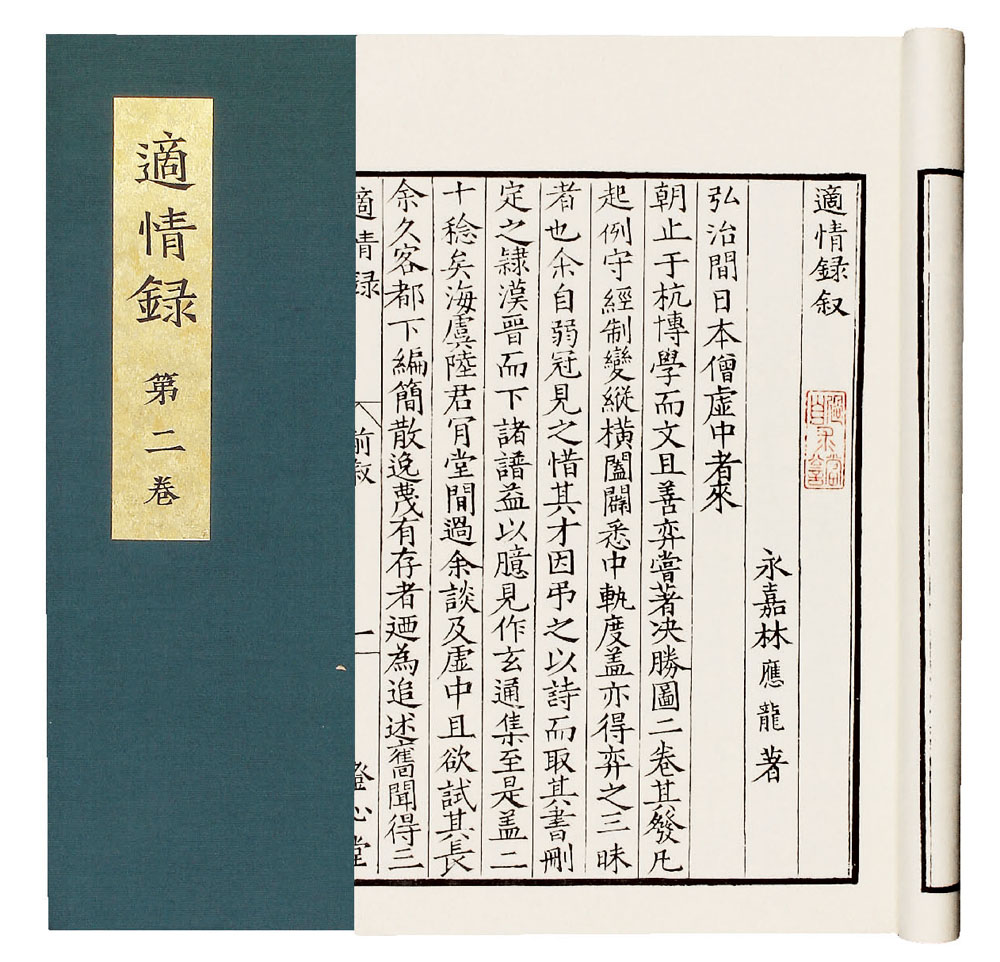 適情録
第二卷
適情録叙
永嘉林應龍著
弘治間日本僧虛中者來
朝止于杭博學而文且善弈嘗著决勝圖二卷其發凡
起例守經制變縱橫闔闢悉中軌度盖亦得弈之三昧
者也余自弱冠見之惜其才因弔之以詩而取其書刪
定之隷漢晉而下諸譜益以臆見作玄通集至是盖二
十稔矣海虞陸君肎堂間過余談及虛中且欲試其長
余久客都下編簡散逸蔑有存者迺為追述舊聞得三
適情録
前叙
一
澄心堂